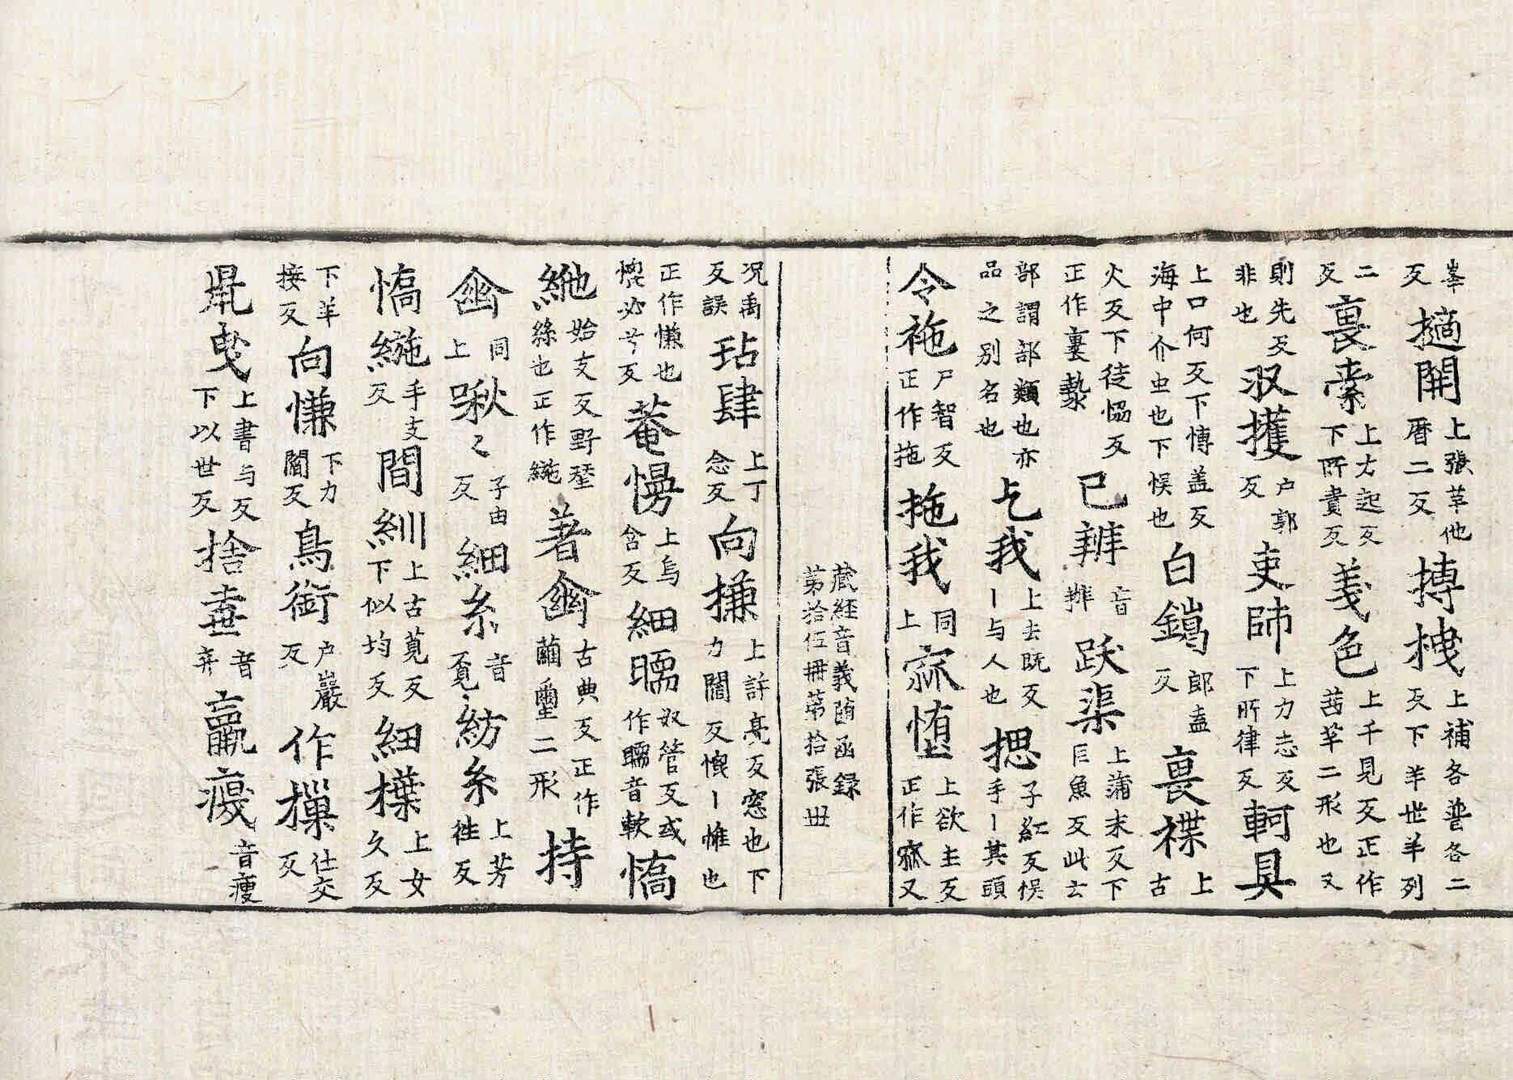 峯反擿開上張革他曆二反搏拽上補各普各二反下羊世羊列
二反裛橐上才起反下所責反羛色上千見反正作茜草二形也又
則先反非也㕛擭户郭反吏師上力志反下所律反軻具
上口何反下博盖反海中介虫也下悮也白鑞郎盍反裛襍上古
火反下徒恊反正作裏褺已辨音辨跋渠上蒲末反下巨魚反此云
部謂部類也亦品之别名也乞我上去既反丨与人也摁子紅反悮手丨其頭
令袘尸智反正作拖拖我同上寐惰上欲主反正作寐又
藏經音義隨函録
第拾伍册第拾張 世
况禹反誤玷肆上丁念反向㨿上許亮反窓也下力闔反㥦丨惟也
正作慊也㥦必兮反菴㥄上烏含反細㬉奴管反或作㬉音軟憍
絁始支反野蠶絲也正作絁著㡧古典反正作繭䖢二形持
㡧同上啾々子由反細糸音覔紡糸上芳往反
憍絁手支反間紃上古莧反下似均反細㯿上女久反
下羊接反向慊下力闔反鳥銜户巖反作樔仕交反
鼡曳上書与反下以世反捨棄音弃羸㾭音瘦